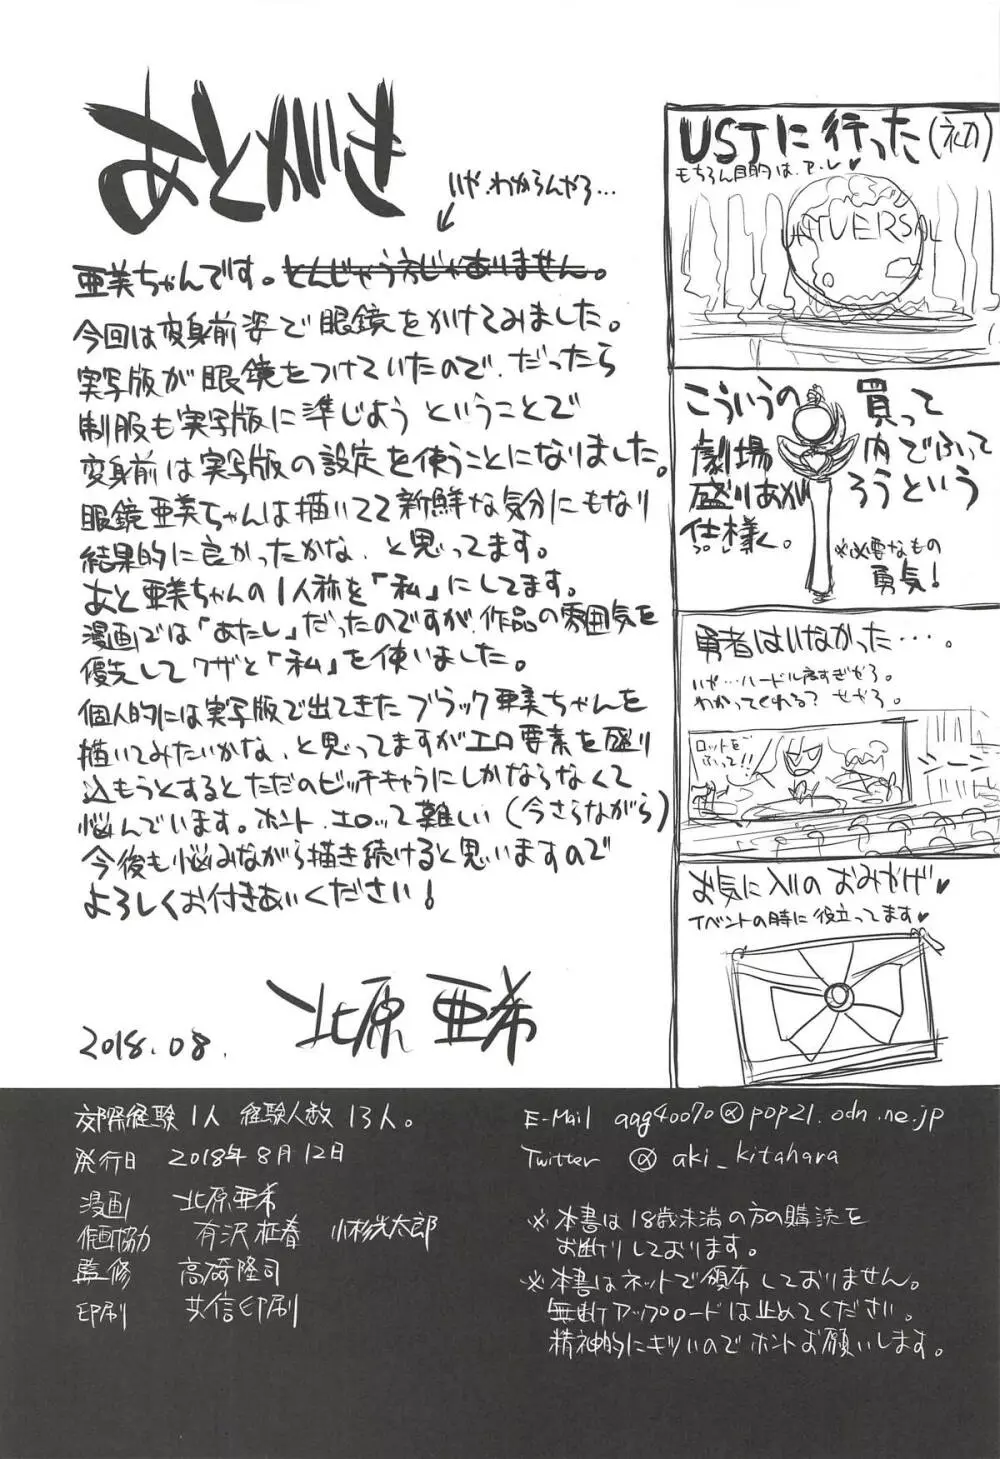 あとがき
いや、わからんやろ…
亜美ちゃんです。とんじゃうカじゃありません。
今回は変身前姿で眼鏡をかけてみました。
実写版が眼鏡をつけていたので、だったら
制服も実写版に準じよう ということで
変身前は実写版の設定を使うことになりました。
眼鏡亜美ちゃんは描いてて新鮮な気分にもなり
結果的に良かったかな、と思ってます。
あと亜美ちゃんの1人称を「私」にしてます。
漫画では「あたし」だったのですが、作品の雰囲気を
優先してワザと「私」を使いました。
個人的には実写版で出てきたブラック亜美ちゃんを
描いてみたいかな、と思ってますがエロ要素を盛り
込もうとするとただのビッチキャラにしかならなくて
悩んでいます。ホント、エロって難しい(今さらながら)
今後も悩みながら描き続けると思いますので
よろしくお付きあいください!
北原亜希
2018.08.
USJに行った(初)
もちろん目的は、ア・レ♥
UNIVERSAL
こういうの買って
劇場内でふって
盛りあがろうという
仕様。
※必要なもの
勇気!
勇者はいなかった・・・・。
いや…ハードル高すぎやろ。
わかってくれる?せやろ。
ロッドを
ふって!!
シーン
お気に入りのおみやげ♥
イベントの時に役立ってます♥
交際経験1人 経験人数13人。
発行日 2018年8月12日
漫画 北原亜希
作画協力 有沢柾春 小杉光太郎
監修 高碕隆司
印刷 共信印刷
E-Mail aag40070@pop21.odn.ne.jp
Twitter @aki_kitahara
※本書は18歳未満の方の購読を
お断りしております。
※本書はネットで頒布しておりません。
無断アップロードは止めてください。
精神的にキツいのでホントお願いします。